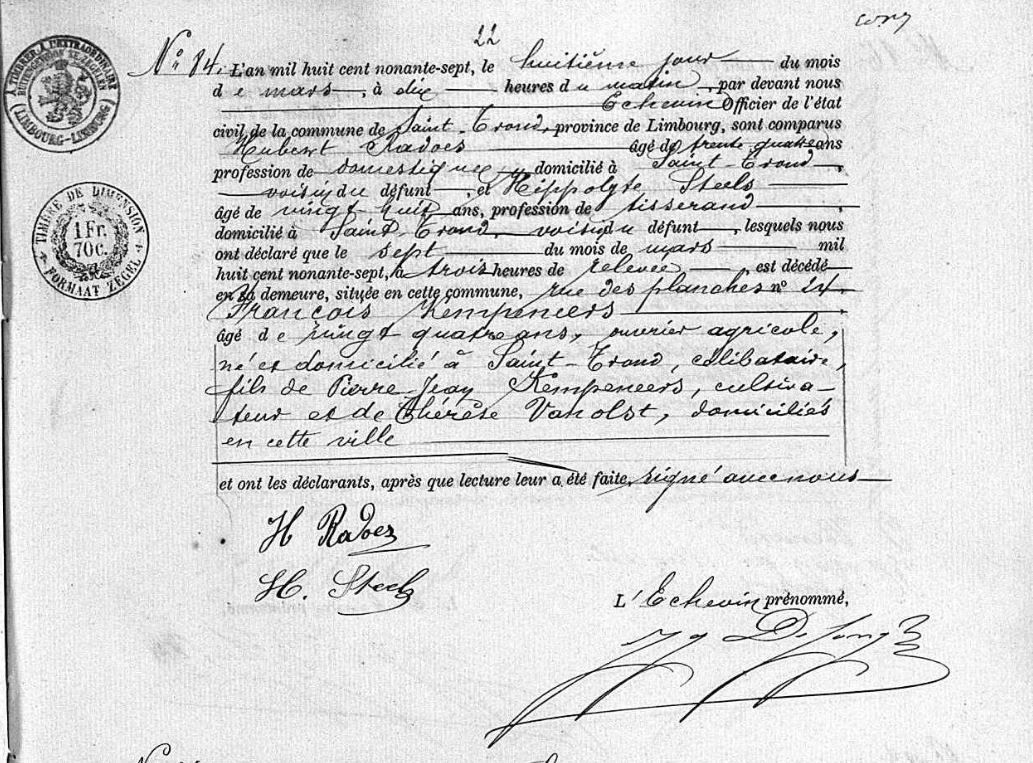 22
copy
N° 84. L'an mil huit cent nonante-sept, le huitième jour du mois
de mars, à dix heures du matin, par devant nous
Echevin Officier de l'état
civil de la commune de Saint-Trond, province de Limbourg, sont comparus
Hubert Radoes âgé de trente quatre ans
profession de domestique, domicilié à Saint-Trond,
voisin du défunt, et Hippolyte Steels
âgé de vingt huit ans, profession de tisserand
domicilié à Saint-Trond, voisin du défunt, lesquels nous
ont déclaré que le sept du mois de mars mil
huit cent nonante-sept, à trois heures de relevée, est décédé
en sa demeure, située en cette commune, rue des planches n° 24
François Kempeneers
âgé de vingt quatre ans, ouvrier agricole,
né et domicilié à Saint-Trond, célibataire,
fils de Pierre Jean Kempeneers, cultiva-
teur et de Thérèse Vanolst, domiciliés
en cette ville
et ont les déclarants, après que lecture leur a été faite, signé avec nous
H Radoes
H. Steels
L'Echevin prénommé,
A TIMBRER A L'EXTRAORDINAIRE
(LIMBOURG-LIMBURG)
TIMBRE DE DIMENSION
1 Fr.
70 c.
FORMAAT ZEGEL